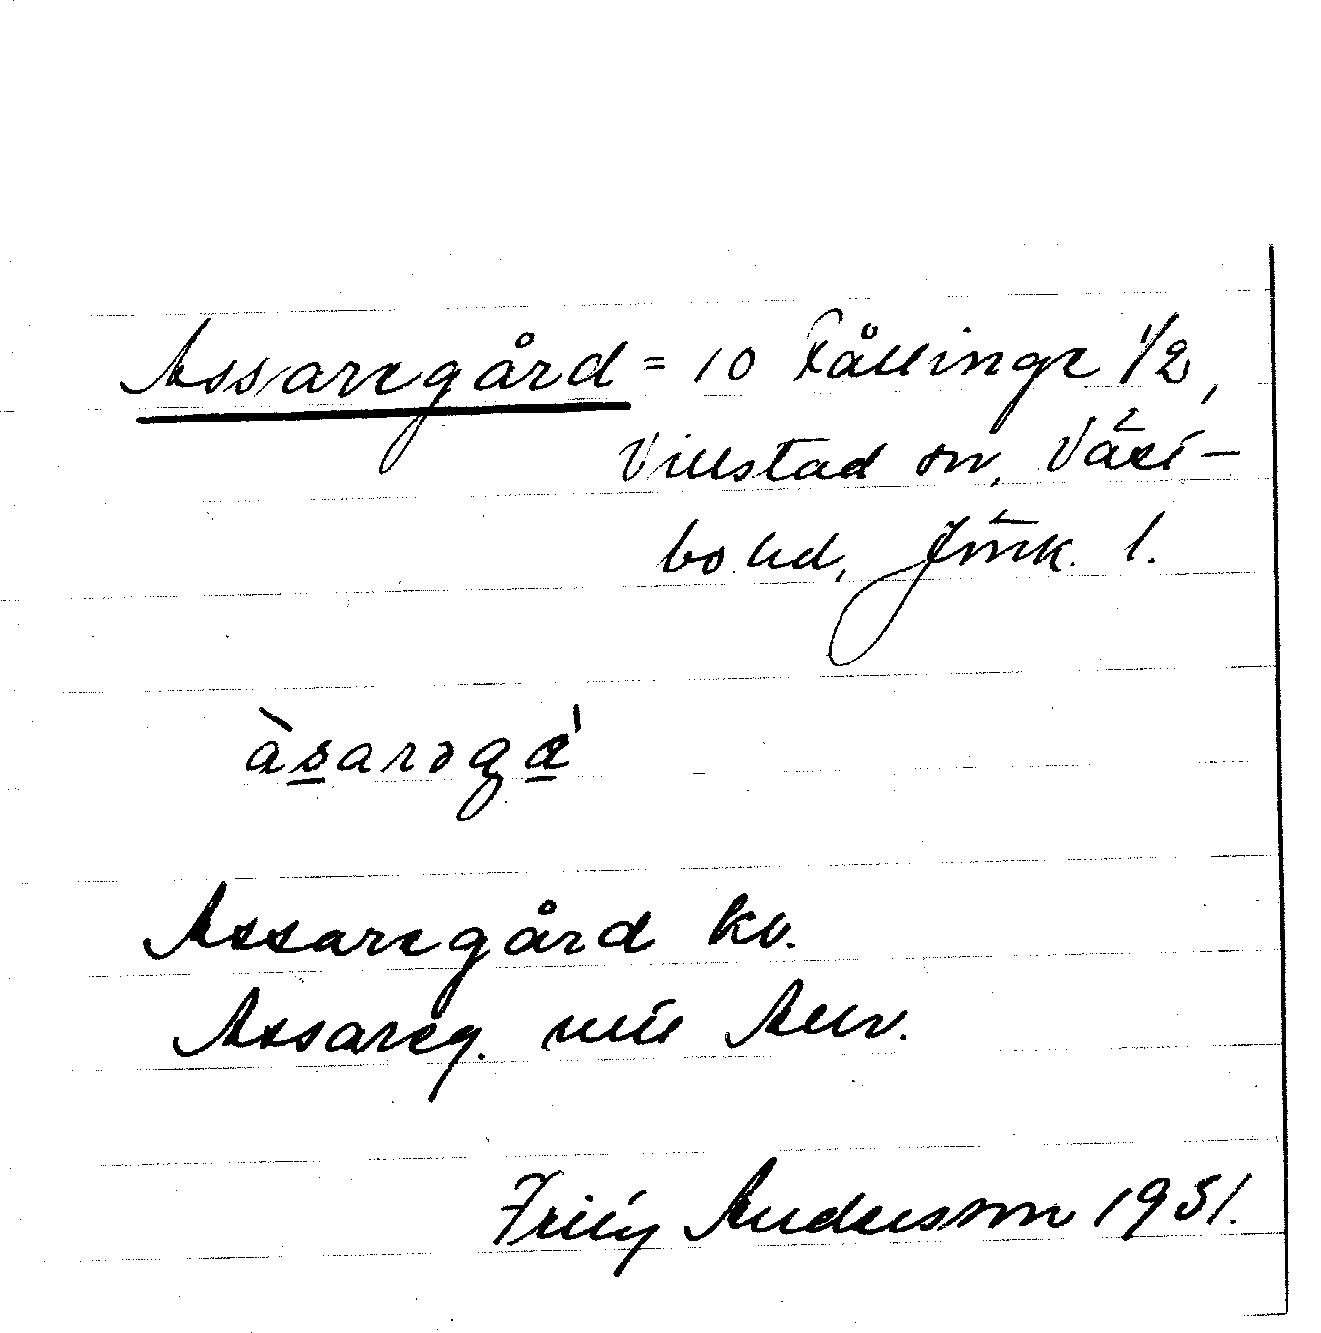 Assaregård = 10 Fållinge 1/2,
Villstad sn, Väst-
bo hd, Jönk. l.
àsarəgá
Assaregård kv.
Assareg.
Andersson 1951.